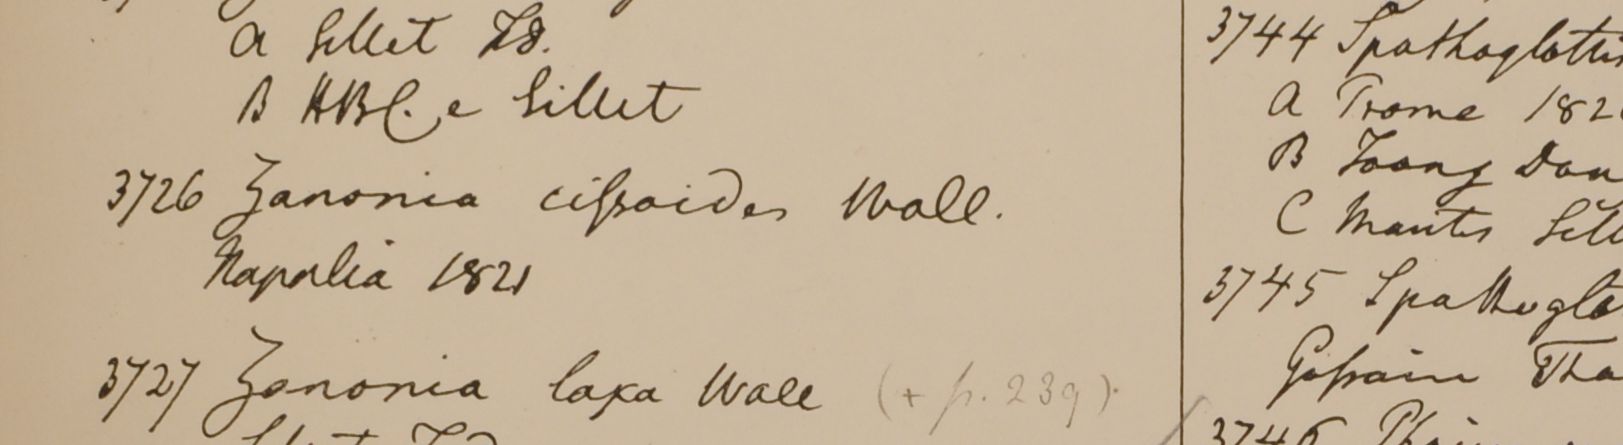 a Sillet FD.
B HBC. e Sillet
3726 Zanonia cissoides Wall.
Napalia 1821
3727 Zanonia laxa Wall (+ p. 239).
3744 Spathoglottis
A Prome 182
B Toong Don
C Mantis Sill
3745 Spathoglo
Gossain Tha
3746